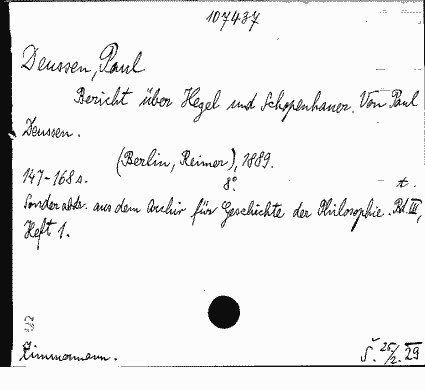 107437
Deussen, Paul
Bericht über Hegel und Schopenhauer. Von Paul
Deussen.
(Berlin, Reimer), 1889.
147-168 s. 8°. t.
Sonderabdr. aus dem Archiv für Geschichte der Philosophie. Bd. III,
Heft 1.
Zimmermann. Š. 25/2. 29